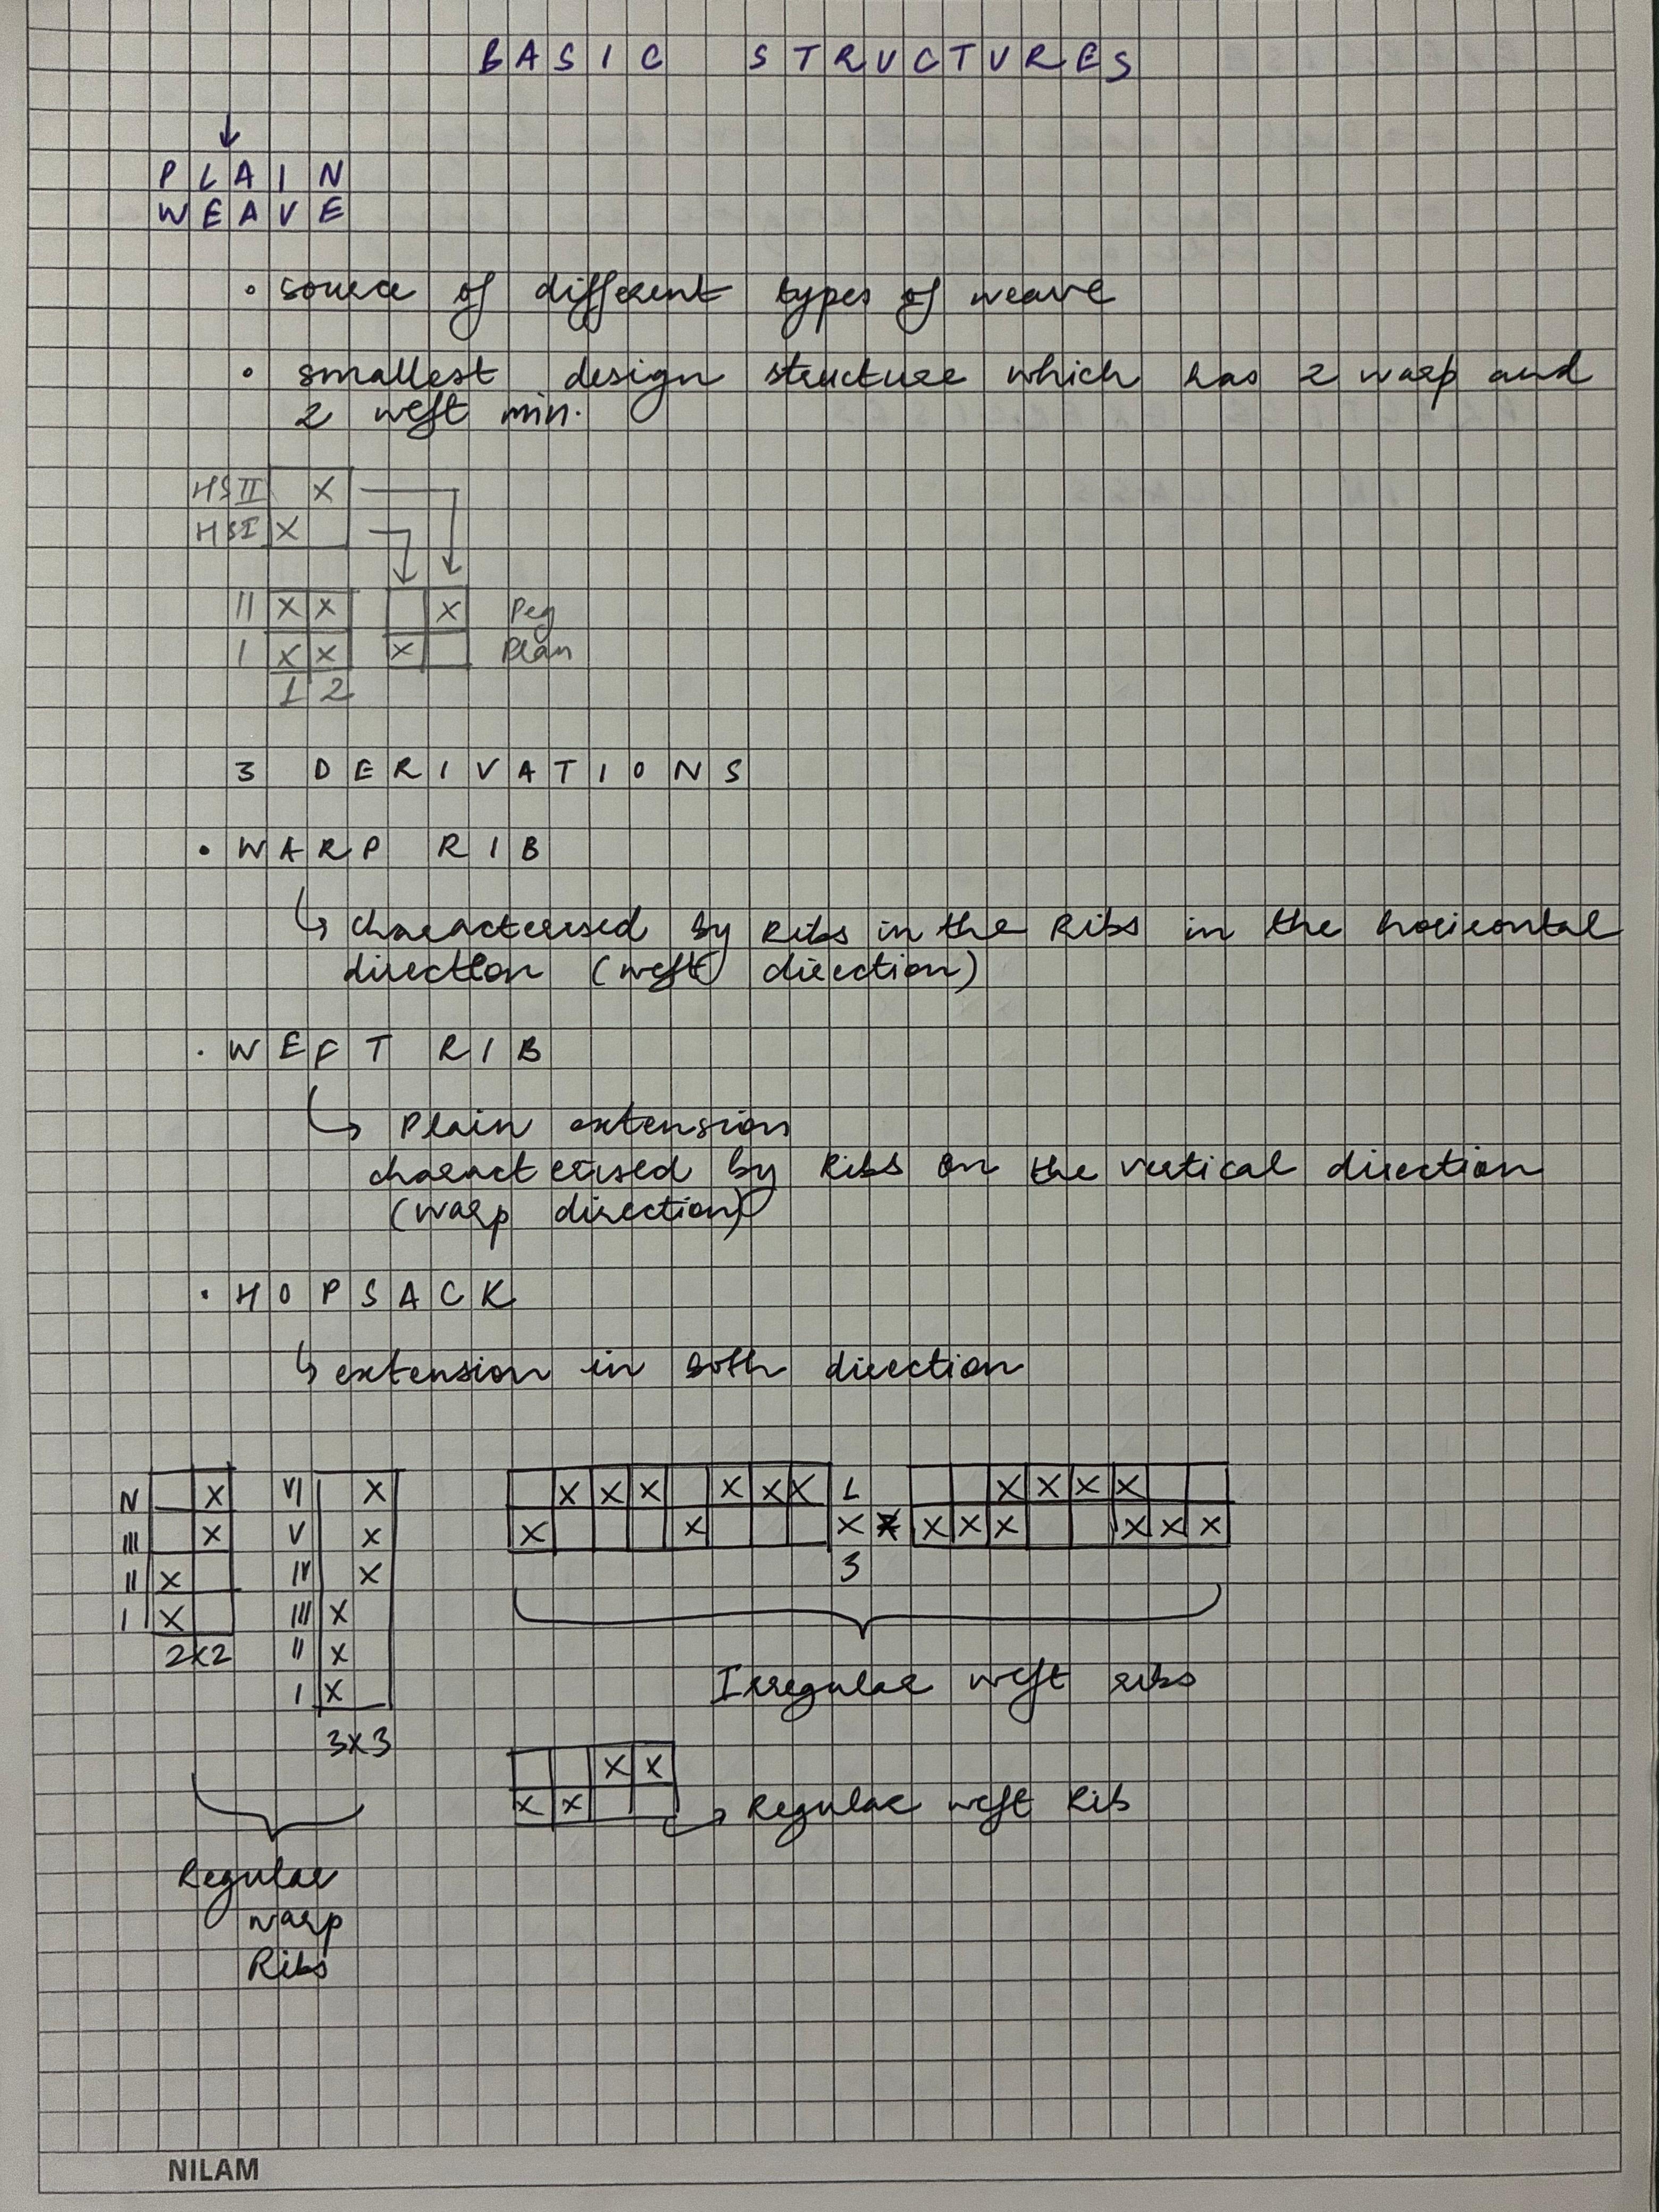 BASIC STRUCTURES
↓
PLAIN
WEAVE
• source of different types of weave
• smallest design structure which has 2 warp and
2 weft min.
HSII X
HSI X
II X X X Peg
I X X X Plan
1 2
3 DERIVATIONS
• WARP RIB
↳ characterised by Ribs in the Ribs in the horizontal
direction (weft direction)
• WEFT RIB
↳ Plain extension
characterised by Ribs on the vertical direction
(warp direction)
• HOPSACK
↳ extension in both direction
IV X VI X X X X X X X X X X X
III X V X X X X X X X X X X X
II X IV X 3
I X III X
2x2 II X
I X
3x3
Irregular weft ribs
X X
X X
→ Regular weft Rib
Regular
warp
Ribs
NILAM